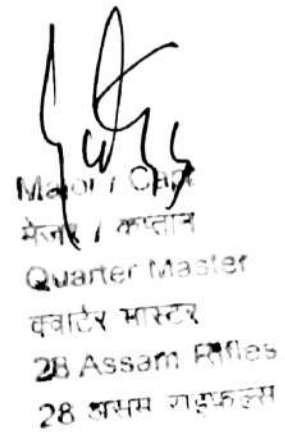 Major / Capt
मेजर / कप्तान
Quarter Master
क्वार्टर मास्टर
28 Assam Rifles
28 असम राइफल्स